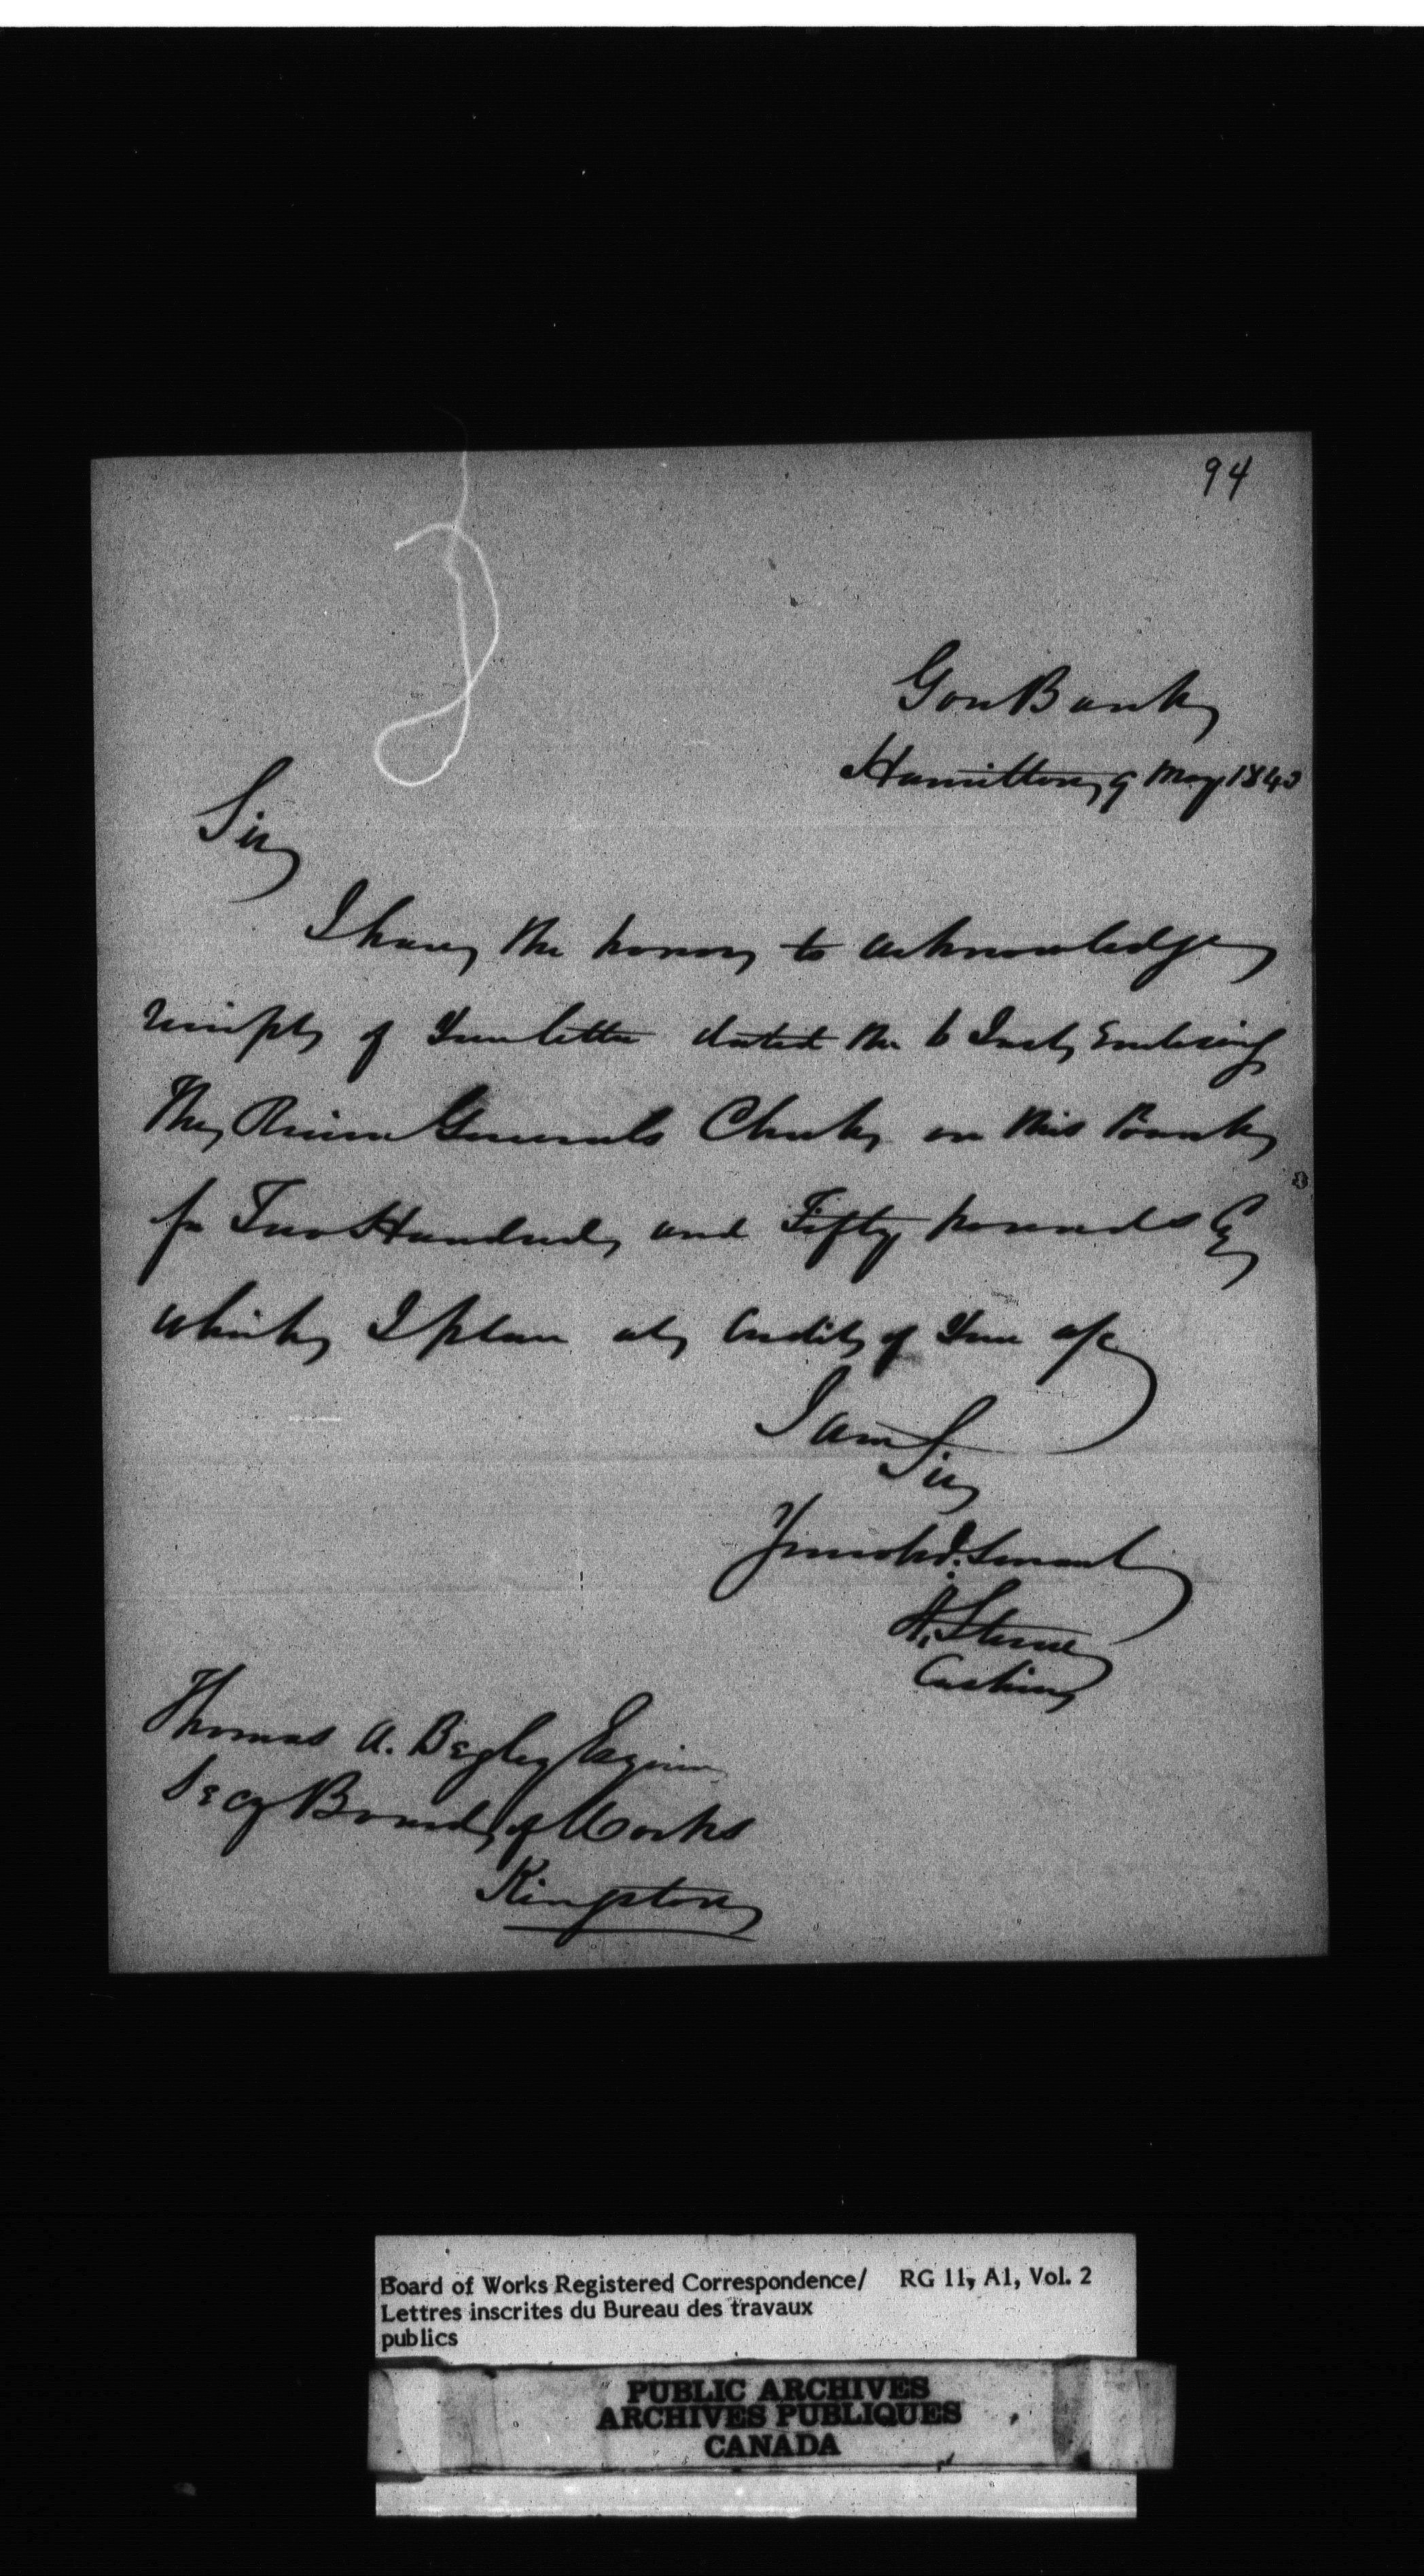 94
Gore Bank
Hamilton 9 May 1843
Sir
I have the honor to acknowledge
receipt of Your letter dated the 6 Inst Enclosing
The Receiver Generals Check on this Bank
for Two Hundred and Fifty pounds Cy
which I place at Credit of Your a/c
I am Sir
Your obd. Servant
A. Steven
Cashier
Thomas A. Begley Esquire
Secy Board of Works
Kingston
Board of Works Registered Correspondence/ RG 11, A1, Vol. 2
Lettres inscrites du Bureau des travaux
publics
PUBLIC ARCHIVES
ARCHIVES PUBLIQUES
CANADA